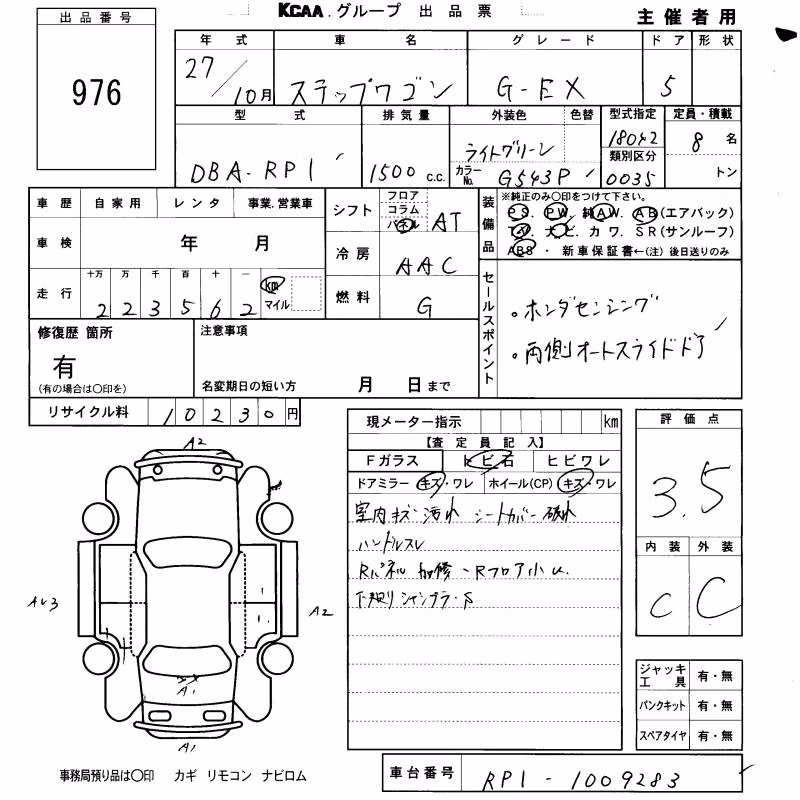 KCAA.グループ 出品票
主催者用
出品番号
976
年式 車名 グレード ドア 形状
27/10月 ステップワゴン G-EX 5
型式 排気量 外装色 色替 型式指定 定員・積載
DBA-RP1 1500 C.C. ライトグリーン 18042 8名
カラーNo. G543P 類別区分 0035 トン
車歴 自家用 レンタ 事業.営業車
車検 年 月
走行 十万 万 千 百 十 一
2 2 3 5 6 2 km マイル
シフト フロア コラム パネル AT
冷房 AAC
燃料 G
装備品 ※純正のみ○印をつけて下さい。
PS. PW. 純AW. AB(エアバック)
TV. ナビ カワ. SR(サンルーフ)
ABS・ 新車保証書←(注)後日送りのみ
セールスポイント
。ホンダセンシング
。両側オートスライドドア
修復歴 箇所
有
(有の場合は○印を)
注意事項
名変期日の短い方 月 日まで
リサイクル料 10230円
現メーター指示 km
【査定員記入】
Fガラス トビ石 ヒビワレ
ドアミラー キズ・ワレ ホイール(CP) キズ・ワレ
室内キズ 汚れ シートカバー破れ
ハンドルスレ
Rパネル 加修 -Rフロア小U.
下廻りシャシブラ・S
評価点
3.5
内装 外装
C C
A2
AU3
A2
A1
A1
ジャッキ工具 有・無
パンクキット 有・無
スペアタイヤ 有・無
事務局預り品は○印 カギ リモコン ナビロム
車台番号 RP1-1009283